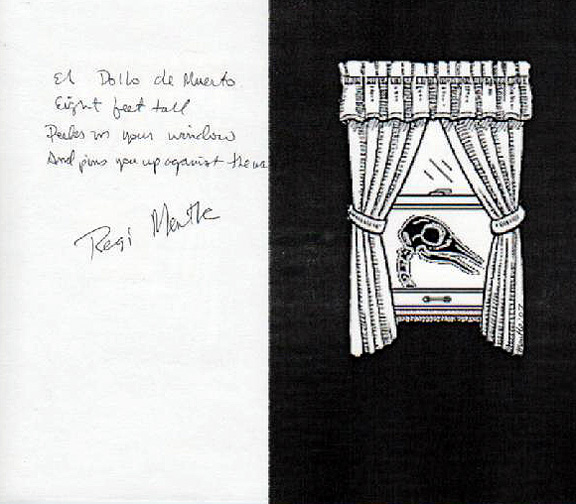 El Pollo de Muerto
Eight feet tall
Peeks in your window
And pins you up against the wa
Regi Mentle